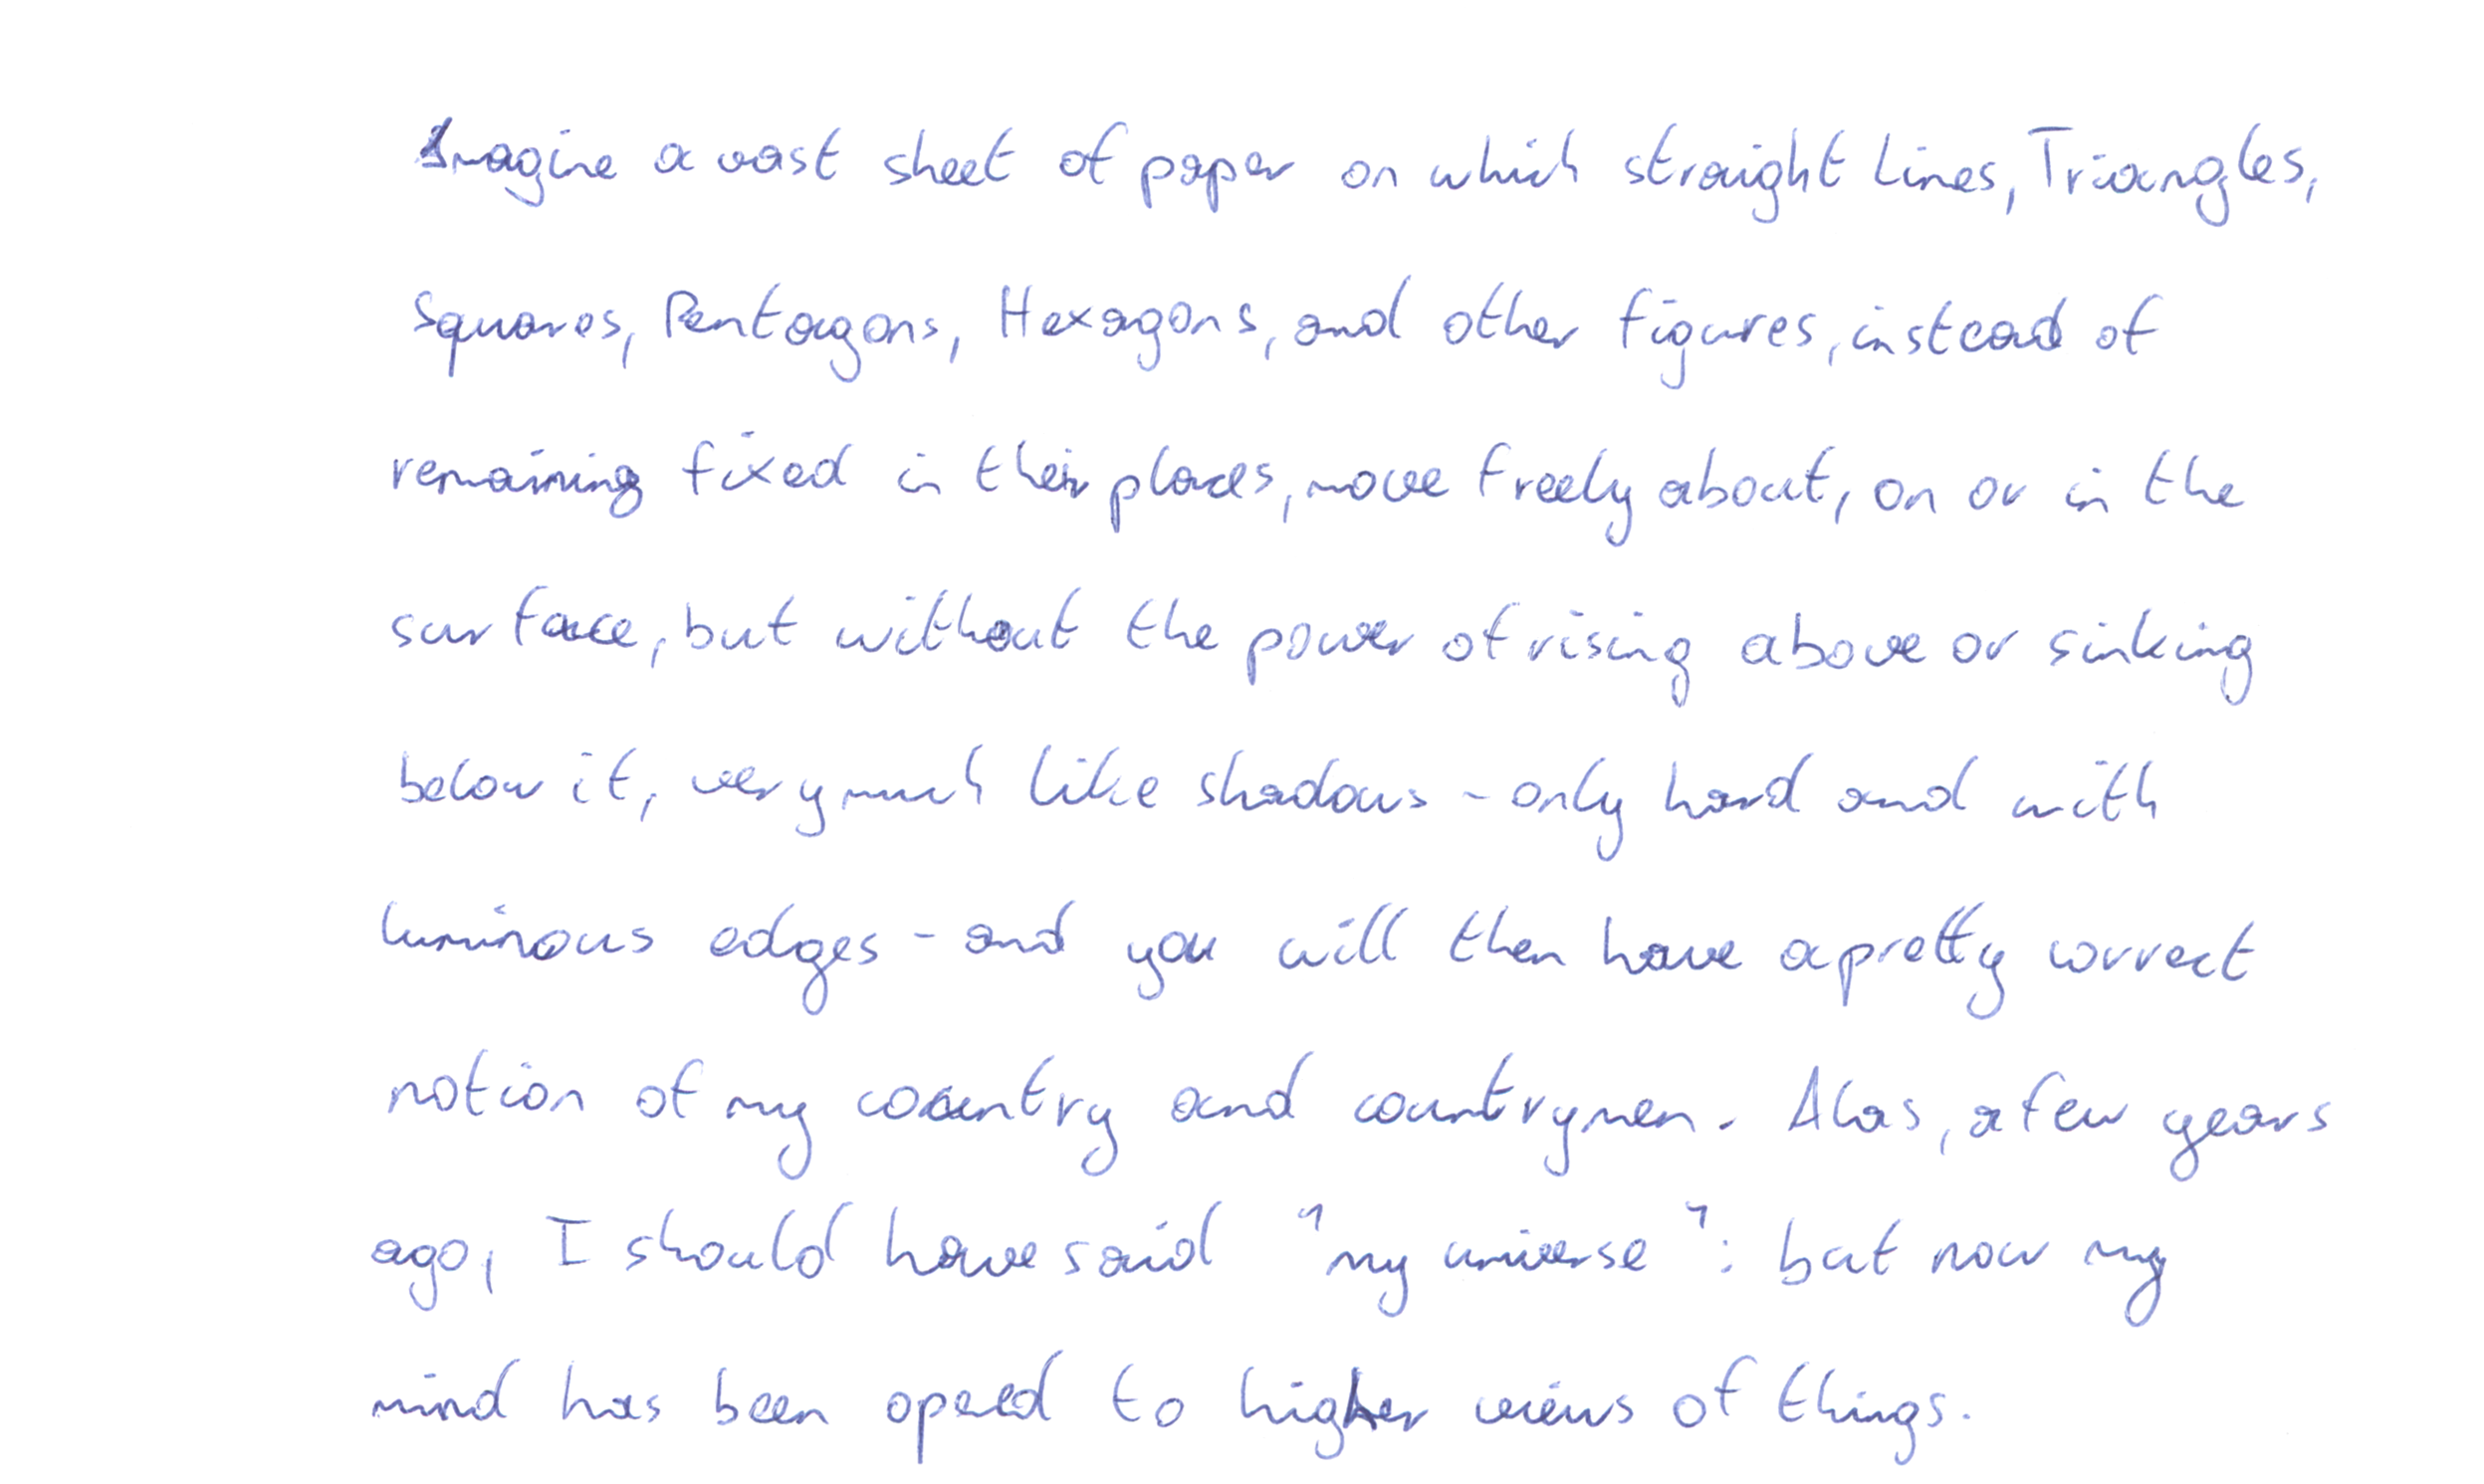 Imagine a vast sheet of paper on which straight Lines, Triangles,
Squares, Pentagons, Hexagons, and other figures, instead of
remaining fixed in their places, move freely about, on or in the
surface, but without the power of rising above or sinking
below it, very much like shadows - only hard and with
luminous edges - and you will then have a pretty correct
notion of my country and countrymen. Alas, a few years
ago, I should have said "my universe": but now my
mind has been opened to higher views of things.